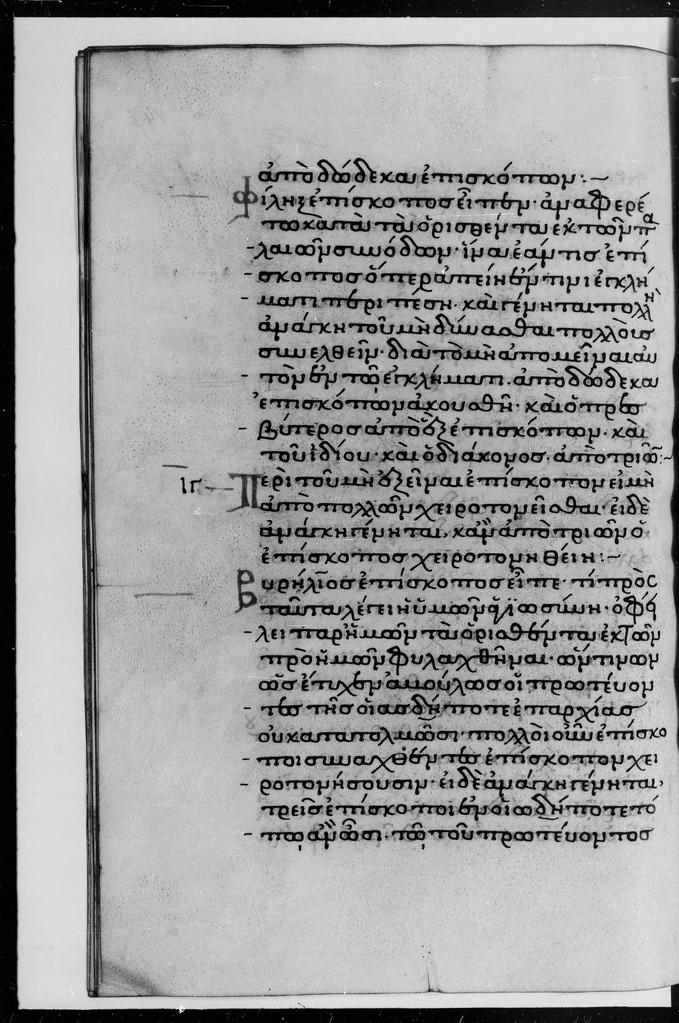 ἀπὸ δώδεκα ἐπισκόπων :~
Φίλιξ ἐπίσκοπος εἶπεν · ἀναφερέ
τω κατὰ τὰ ὁρισθέντα ἐκ τῶν π
λαιῶν συνόδων · ἵνα ἐάν τις ἐπί
σκοπος ὅπερ ἀπείη ἔν τινι ἐγκλή
ματι περιπέσῃ · καὶ γένηται πολλὴ
ἀνάγκη τοῦ μὴ δύνασθαι πολλοὺς
συνελθεῖν · διὰ τὸ μὴ ἀπομεῖναι αὐ
τὸν ἐν τῷ ἐγκλήματι · ἀπὸ δώδεκα
ἐπισκόπων ἀκουσθῇ · καὶ ὁ πρεσ
βύτερος ἀπὸ ἓξ ἐπισκόπων · καὶ
τοῦ ἰδίου · καὶ ὁ διάκονος · ἀπὸ τριῶν :~
ΙΓ Περὶ τοῦ μὴ ἐξεῖναι ἐπίσκοπον εἰ μὴ
ἀπὸ πολλῶν χειροτονεῖσθαι · εἰ δὲ
ἀνάγκη γένηται, κἂν ἀπὸ τριῶν ὁ
ἐπίσκοπος χειροτονηθείη :~
υρήλιος ἐπίσκοπος εἶπε · τί πρὸς
ταῦτα λέγει ἡ ὑμῶν ἁγιωσύνη · ὀφεί
λει παρ' ἡμῶν τὰ ὁρισθέντα ἐκ τῶν
πρὸ ἡμῶν φυλαχθῆναι · ὧντινων
ὡς ἔτυχεν ἀμούλως οἱ πρωτεύον
τες τῆς οἵας δήποτε ἐπαρχίας
οὐ κατατολμῶσι · πολλοὶ οὖν ἐπίσκο
ποι συναχθέντες ἐπίσκοπον χει
ροτονήσουσιν · εἰ δὲ ἀνάγκη γένηται,
τρεῖς ἐπίσκοποι ἐν οἵῳ δήποτε τό
πῳ ἂν ὦσι · τῷ τοῦ πρωτεύοντος